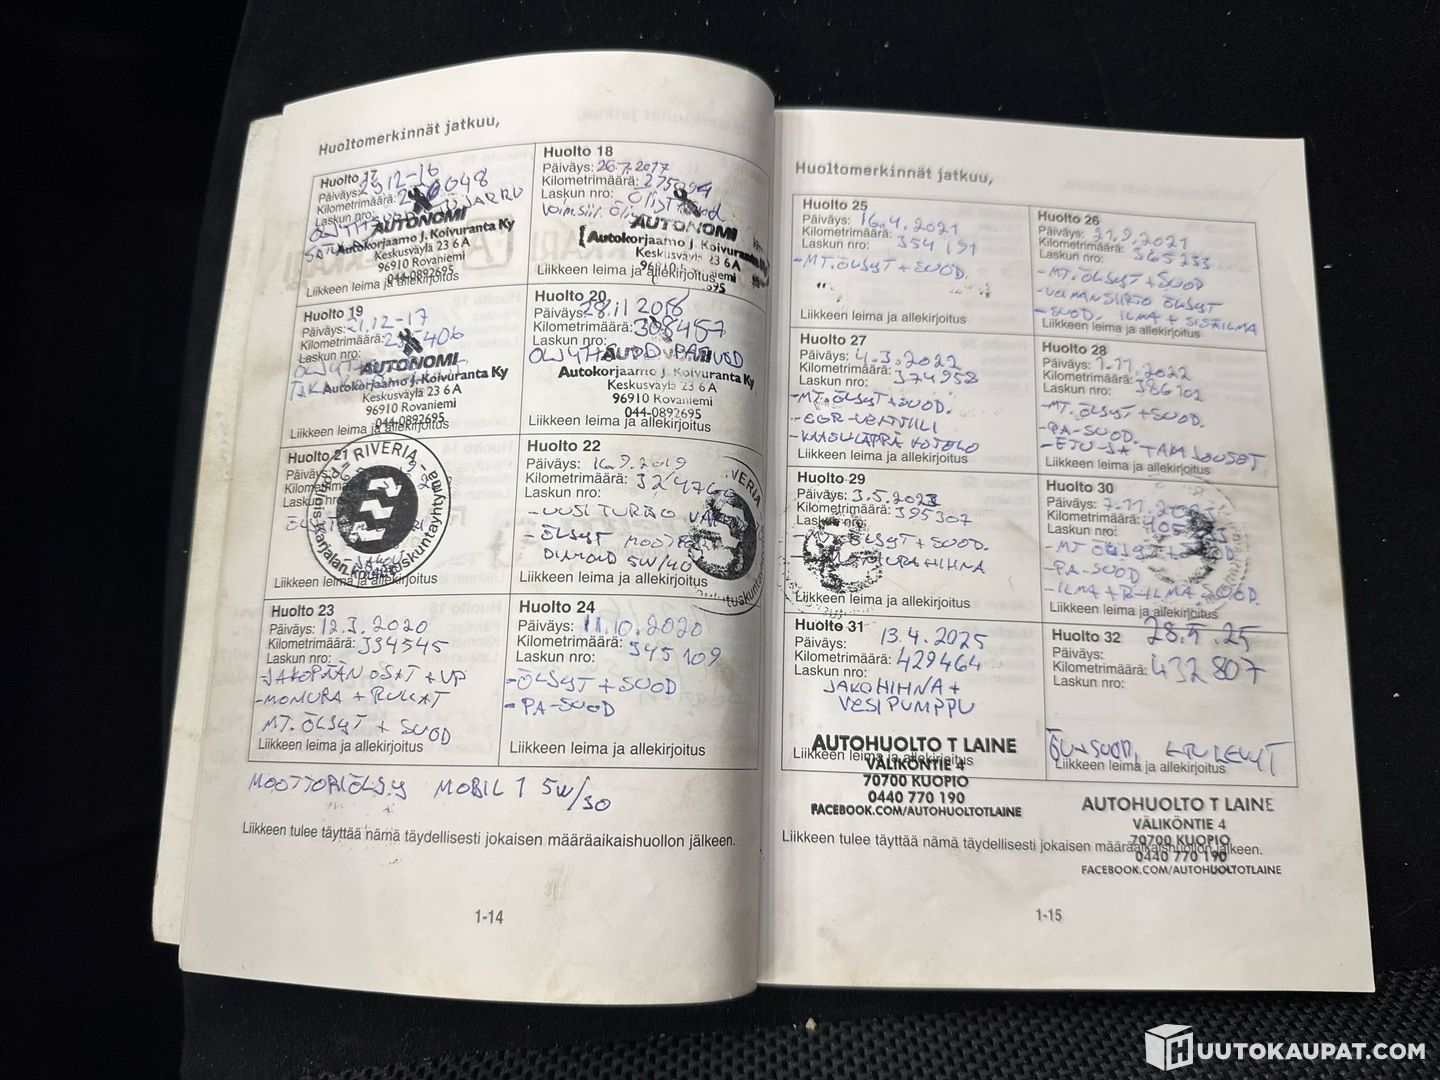 Huoltomerkinnät jatkuu,
Huolto 17
Päiväys: 29.12-16
Kilometrimäärä:
Laskun nro:
AUTONOMI
Autokorjaamo J. Koivuranta Ky
Keskusväylä 23 6 A
96910 Rovaniemi
044-0892695
Liikkeen leima ja allekirjoitus
Huolto 18
Päiväys: 26.7.2017
Kilometrimäärä:
Laskun nro:
AUTONOMI
Autokorjaamo J. Koivuranta Ky
Keskusväylä 23 6 A
Liikkeen leima ja allekirjoitus
Huolto 19
Päiväys: 21.12-17
Kilometrimäärä:
Laskun nro:
AUTONOMI
Autokorjaamo J. Koivuranta Ky
Keskusväylä 23 6 A
96910 Rovaniemi
044-0892695
Liikkeen leima ja allekirjoitus
Huolto 20
Päiväys: 28.11 2018
Kilometrimäärä: 308457
Laskun nro:
Autokorjaamo J. Koivuranta Ky
Keskusväylä 23 6 A
96910 Rovaniemi
044-0892695
Liikkeen leima ja allekirjoitus
Huolto 21
RIVERIA
Pohjois-Karjalan koulutuskuntayhtymä
Liikkeen leima ja allekirjoitus
Huolto 22
Päiväys: 16.9.2019
Kilometrimäärä:
Laskun nro:
- UUSI TURBO
- ÖLJYT
5W/40
Liikkeen leima ja allekirjoitus
Huolto 23
Päiväys: 12.3.2020
Kilometrimäärä: 334345
Laskun nro:
- JAKOPÄÄN OSAT + VP
- MONIURA + RULLAT
MT. ÖLJYT + SUOD
Liikkeen leima ja allekirjoitus
Huolto 24
Päiväys: 11.10.2020
Kilometrimäärä: 345109
Laskun nro:
- ÖLJYT + SUOD
- PA-SUOD
Liikkeen leima ja allekirjoitus
MOOTTORIÖLJY MOBIL 1 5W/30
Liikkeen tulee täyttää nämä täydellisesti jokaisen määräaikaishuollon jälkeen.
1-14
Huoltomerkinnät jatkuu,
Huolto 25
Päiväys: 16.4.2021
Kilometrimäärä: 354191
Laskun nro:
- MT. ÖLJYT + SUOD.
Liikkeen leima ja allekirjoitus
Huolto 26
Päiväys: 21.9.2021
Kilometrimäärä: 365233
Laskun nro:
- MT. ÖLJYT + SUOD
- VOIMANSIIRTO ÖLJYT
- SUOD. ILMA + SISÄILMA
Liikkeen leima ja allekirjoitus
Huolto 27
Päiväys: 4.3.2022
Kilometrimäärä: 374958
Laskun nro:
- MT. ÖLJYT + SUOD.
- EGR-VENTTIILI
- KAASULÄPPÄ KOTELO
Liikkeen leima ja allekirjoitus
Huolto 28
Päiväys: 1.11.2022
Kilometrimäärä: 386102
Laskun nro:
- MT. ÖLJYT + SUOD.
- PA-SUOD.
- ETU- JA TAKAJOUSET
Liikkeen leima ja allekirjoitus
Huolto 29
Päiväys: 3.5.2023
Kilometrimäärä: 395307
Laskun nro:
- MT. ÖLJYT + SUOD.
- MONIURAHIHNA
Liikkeen leima ja allekirjoitus
Huolto 30
Päiväys: 7.11.2023
Kilometrimäärä:
Laskun nro:
- MT ÖLJYT + SUOD.
- PA-SUOD
- ILMA + R-ILMA SUOD.
Liikkeen leima ja allekirjoitus
Huolto 31
Päiväys: 13.4.2025
Kilometrimäärä: 429464
Laskun nro:
JAKOHIHNA +
VESIPUMPPU
Liikkeen leima ja allekirjoitus
AUTOHUOLTO T LAINE
VÄLIKÖNTIE 4
70700 KUOPIO
0440 770 190
FACEBOOK.COM/AUTOHUOLTOTLAINE
Huolto 32
Päiväys: 28.5.25
Kilometrimäärä: 432807
Laskun nro:
Liikkeen leima ja allekirjoitus
AUTOHUOLTO T LAINE
VÄLIKÖNTIE 4
70700 KUOPIO
0440 770 190
FACEBOOK.COM/AUTOHUOLTOTLAINE
Liikkeen tulee täyttää nämä täydellisesti jokaisen määräaikaishuollon jälkeen.
1-15
HUUTOKAUPAT.COM